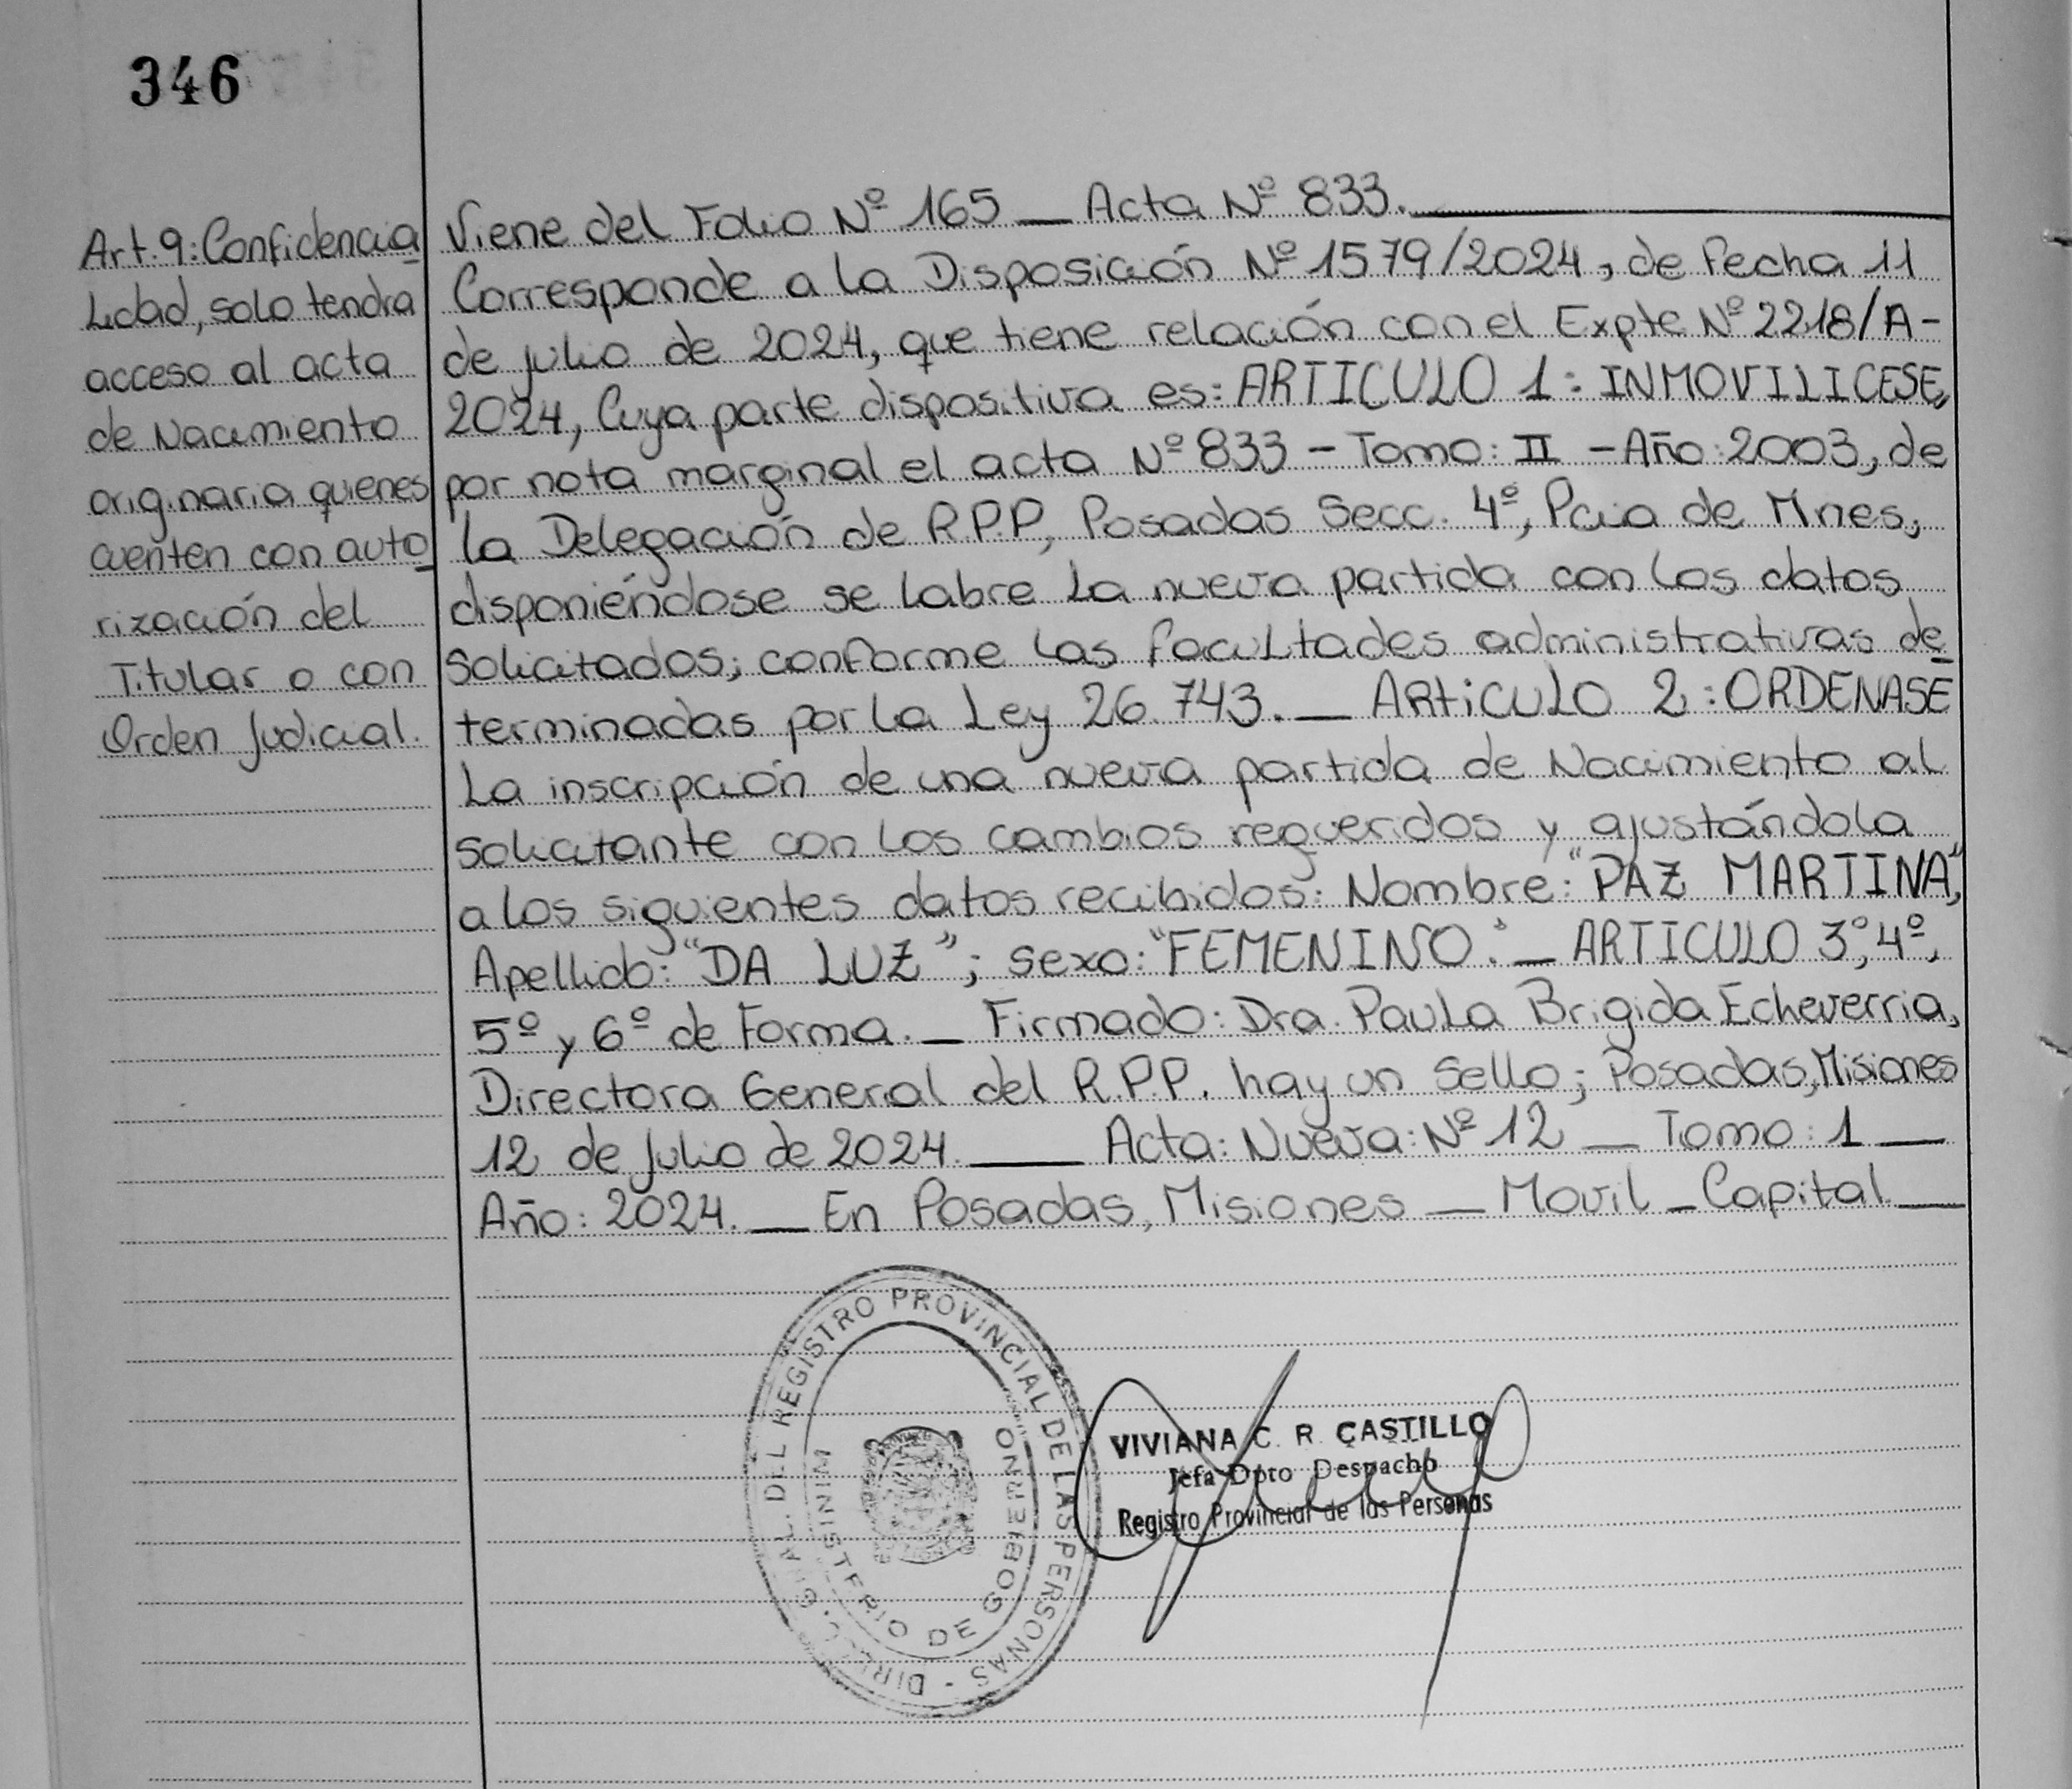 346
Art. 9: Confidencia
Lidad, solo tendra
acceso al acta
de Nacimiento
originaria quienes
cuenten con auto
rización del
Titular o con
Orden Judicial.
Viene del Folio Nº 165 — Acta Nº 833.
Corresponde a la Disposición Nº 1579/2024, de Fecha 11
de julio de 2024, que tiene relación con el Expte Nº 2218/A-
2024, Cuya parte dispositiva es: ARTICULO 1: INMOVILICESE,
por nota marginal el acta Nº 833 - Tomo: II - Año: 2003, de
la Delegación de R.P.P, Posadas Secc. 4º, Pcia de Mnes,
disponiéndose se labre la nueva partida con los datos
Solicitados; conforme las facultades administrativas de
terminadas por la Ley 26.743. — ARTiCULO 2: ORDENASE
La inscripción de una nueva partida de Nacimiento al
solicitante con los cambios requeridos y ajustándola
a los siguientes datos recibidos: Nombre: "PAZ MARTINA",
Apellido: "DA LUZ"; sexo: "FEMENINO." — ARTICULO 3º, 4º,
5º y 6º de Forma. — Firmado: Dra. Paula Brigida Echeverria,
Directora General del R.P.P. hay un Sello; Posadas, Misiones
12 de julio de 2024. — Acta: Nueva: Nº 12 — Tomo: 1 —
Año: 2024. — En Posadas, Misiones — Movil - Capital —
DIREC. GRAL. DEL REGISTRO PROVINCIAL DE LAS PERSONAS -
MINISTERIO DE GOBIERNO
VIVIANA C. R. CASTILLO
Jefa Dpto Despacho
Registro Provincial de las Personas